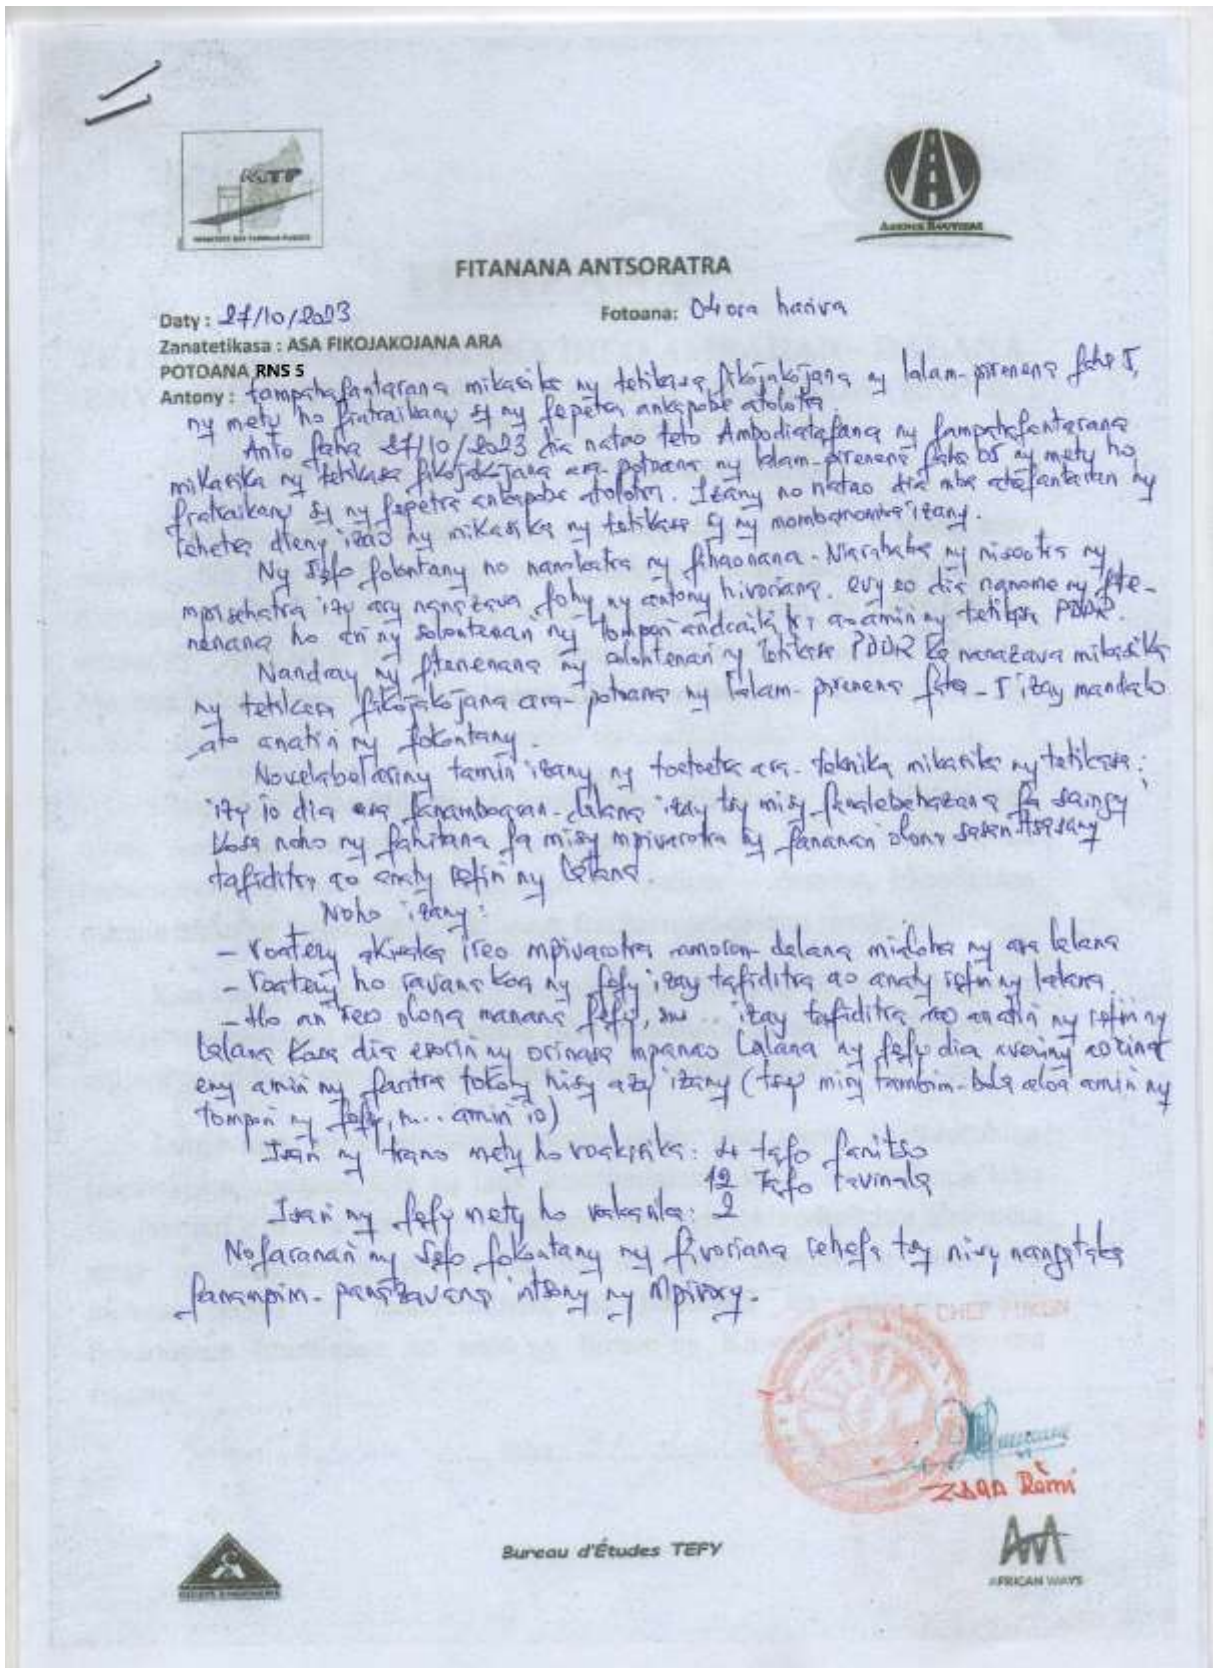 MTP
MINISTERE DES TRAVAUX PUBLICS
AGENCE ROUTIERE
FITANANA ANTSORATRA
Daty : 27/10/2023 Fotoana: 04 ora hariva
Zanatetikasa : ASA FIKOJAKOJANA ARA
POTOANA RNS 5
Antony : fampahafantarana mikasika ny tetikasa fikojakojana ny lalam-pirenena faha 5,
ny mety ho fiatraikany sy ny fepetra ankapobe atolotra.
Anio faha 27/10/2023 dia natao teto Ambodiatafana ny fampahafantarana
mikasika ny tetikasa fikojakojana ara-potoana ny lalam-pirenena faha 05 ny mety ho
fiatraikany sy ny fepetra ankapobe atolotra. Izany no natao dia mba ahafantaran ny
rehetra dieny izao ny mikasika ny tetikasa sy ny mombamomba izany.
Ny Sefo fokontany no nanokatra ny fihaonana. Niarahaba ny nisaotra ny
mpisehatra izy ary nanazava fohy ny antony hivoriana. avy eo dia nanome ny fite-
nenana ho an ny solontenan ny tompon andraikitra ao amin ny tetikasa PDDR.
Nandray ny fitenenana ny solontenan ny tetikasa PDDR ka nanazava mikasika
ny tetikasa fikojakojana ara-potoana ny lalam-pirenena faha-5 izay mandalo
ato anatin ny fokontany.
Novelabelariny tamin izany ny toetoetra ara-teknika mikasika ny tetikasa:
izy io dia asa fanamboaran-dalana izay tsy misy fanalebehazana fa saingy
kosa noho ny fahitana fa misy mpivarotra sy fananan olona sasantsasany
tafiditra ao anaty refin ny lalana.
Noho izany:
- voatery akisaka ireo mpivarotra amoron-dalana mialoha ny asa lalana
- voatery ho ravana koa ny fefy izay tafiditra ao anaty refin ny lalana.
- Ho an ireo olona manana fefy, sns... izay tafiditra ao anatin ny refin ny
lalana kosa dia esorin ny orinasa mpanao lalana ny fefy dia averiny aorina
eny amin ny faritra tokony hisy azy izany (tsy misy tambim-bola aloa amin ny
tompon ny fefy, ... amin io)
Isan ny trano mety ho voakasika: 4 tafo fanitso
12 tafo ravinala
Isan ny fefy mety ho vokasika: 2
Nofaranan ny Sefo fokontany ny fivoriana rehefa tsy nisy nangataka
fanampim-panazavana intsony ny Mpivory.
LE CHEF FOKON
ZSAN Rémi
Bureau d'Études TEFY
AFRICAN WAYS